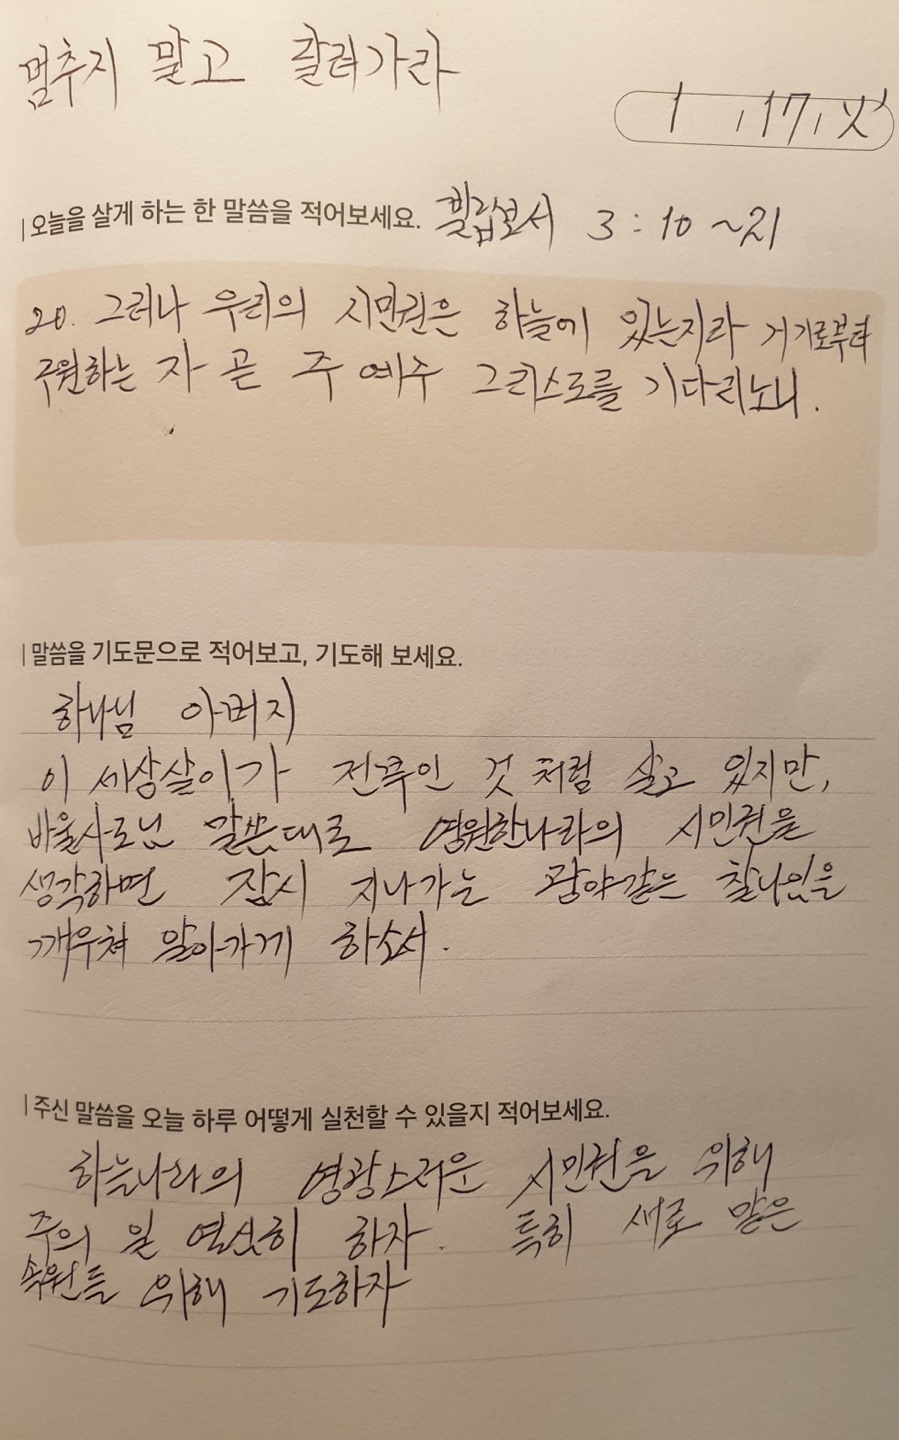 멈추지 말고 달려가라
1 , 17, 火
오늘을 살게 하는 한 말씀을 적어보세요. 빌립보서 3:10~21
20. 그러나 우리의 시민권은 하늘에 있는지라 거기로부터
구원하는 자 곧 주 예수 그리스도를 기다리노니.
말씀을 기도문으로 적어보고, 기도해 보세요.
하나님 아버지
이 세상살이가 전부인 것 처럼 살고 있지만,
바울사도님 말씀대로 영원한나라의 시민권을
생각하면 잠시 지나가는 광야같은 찰나임을
깨우쳐 알아가게 하소서.
주신 말씀을 오늘 하루 어떻게 실천할 수 있을지 적어보세요.
하늘나라의 영광스러운 시민권을 위해
주의 일 열심히 하자. 특히 새로 맡은
속원들 위해 기도하자